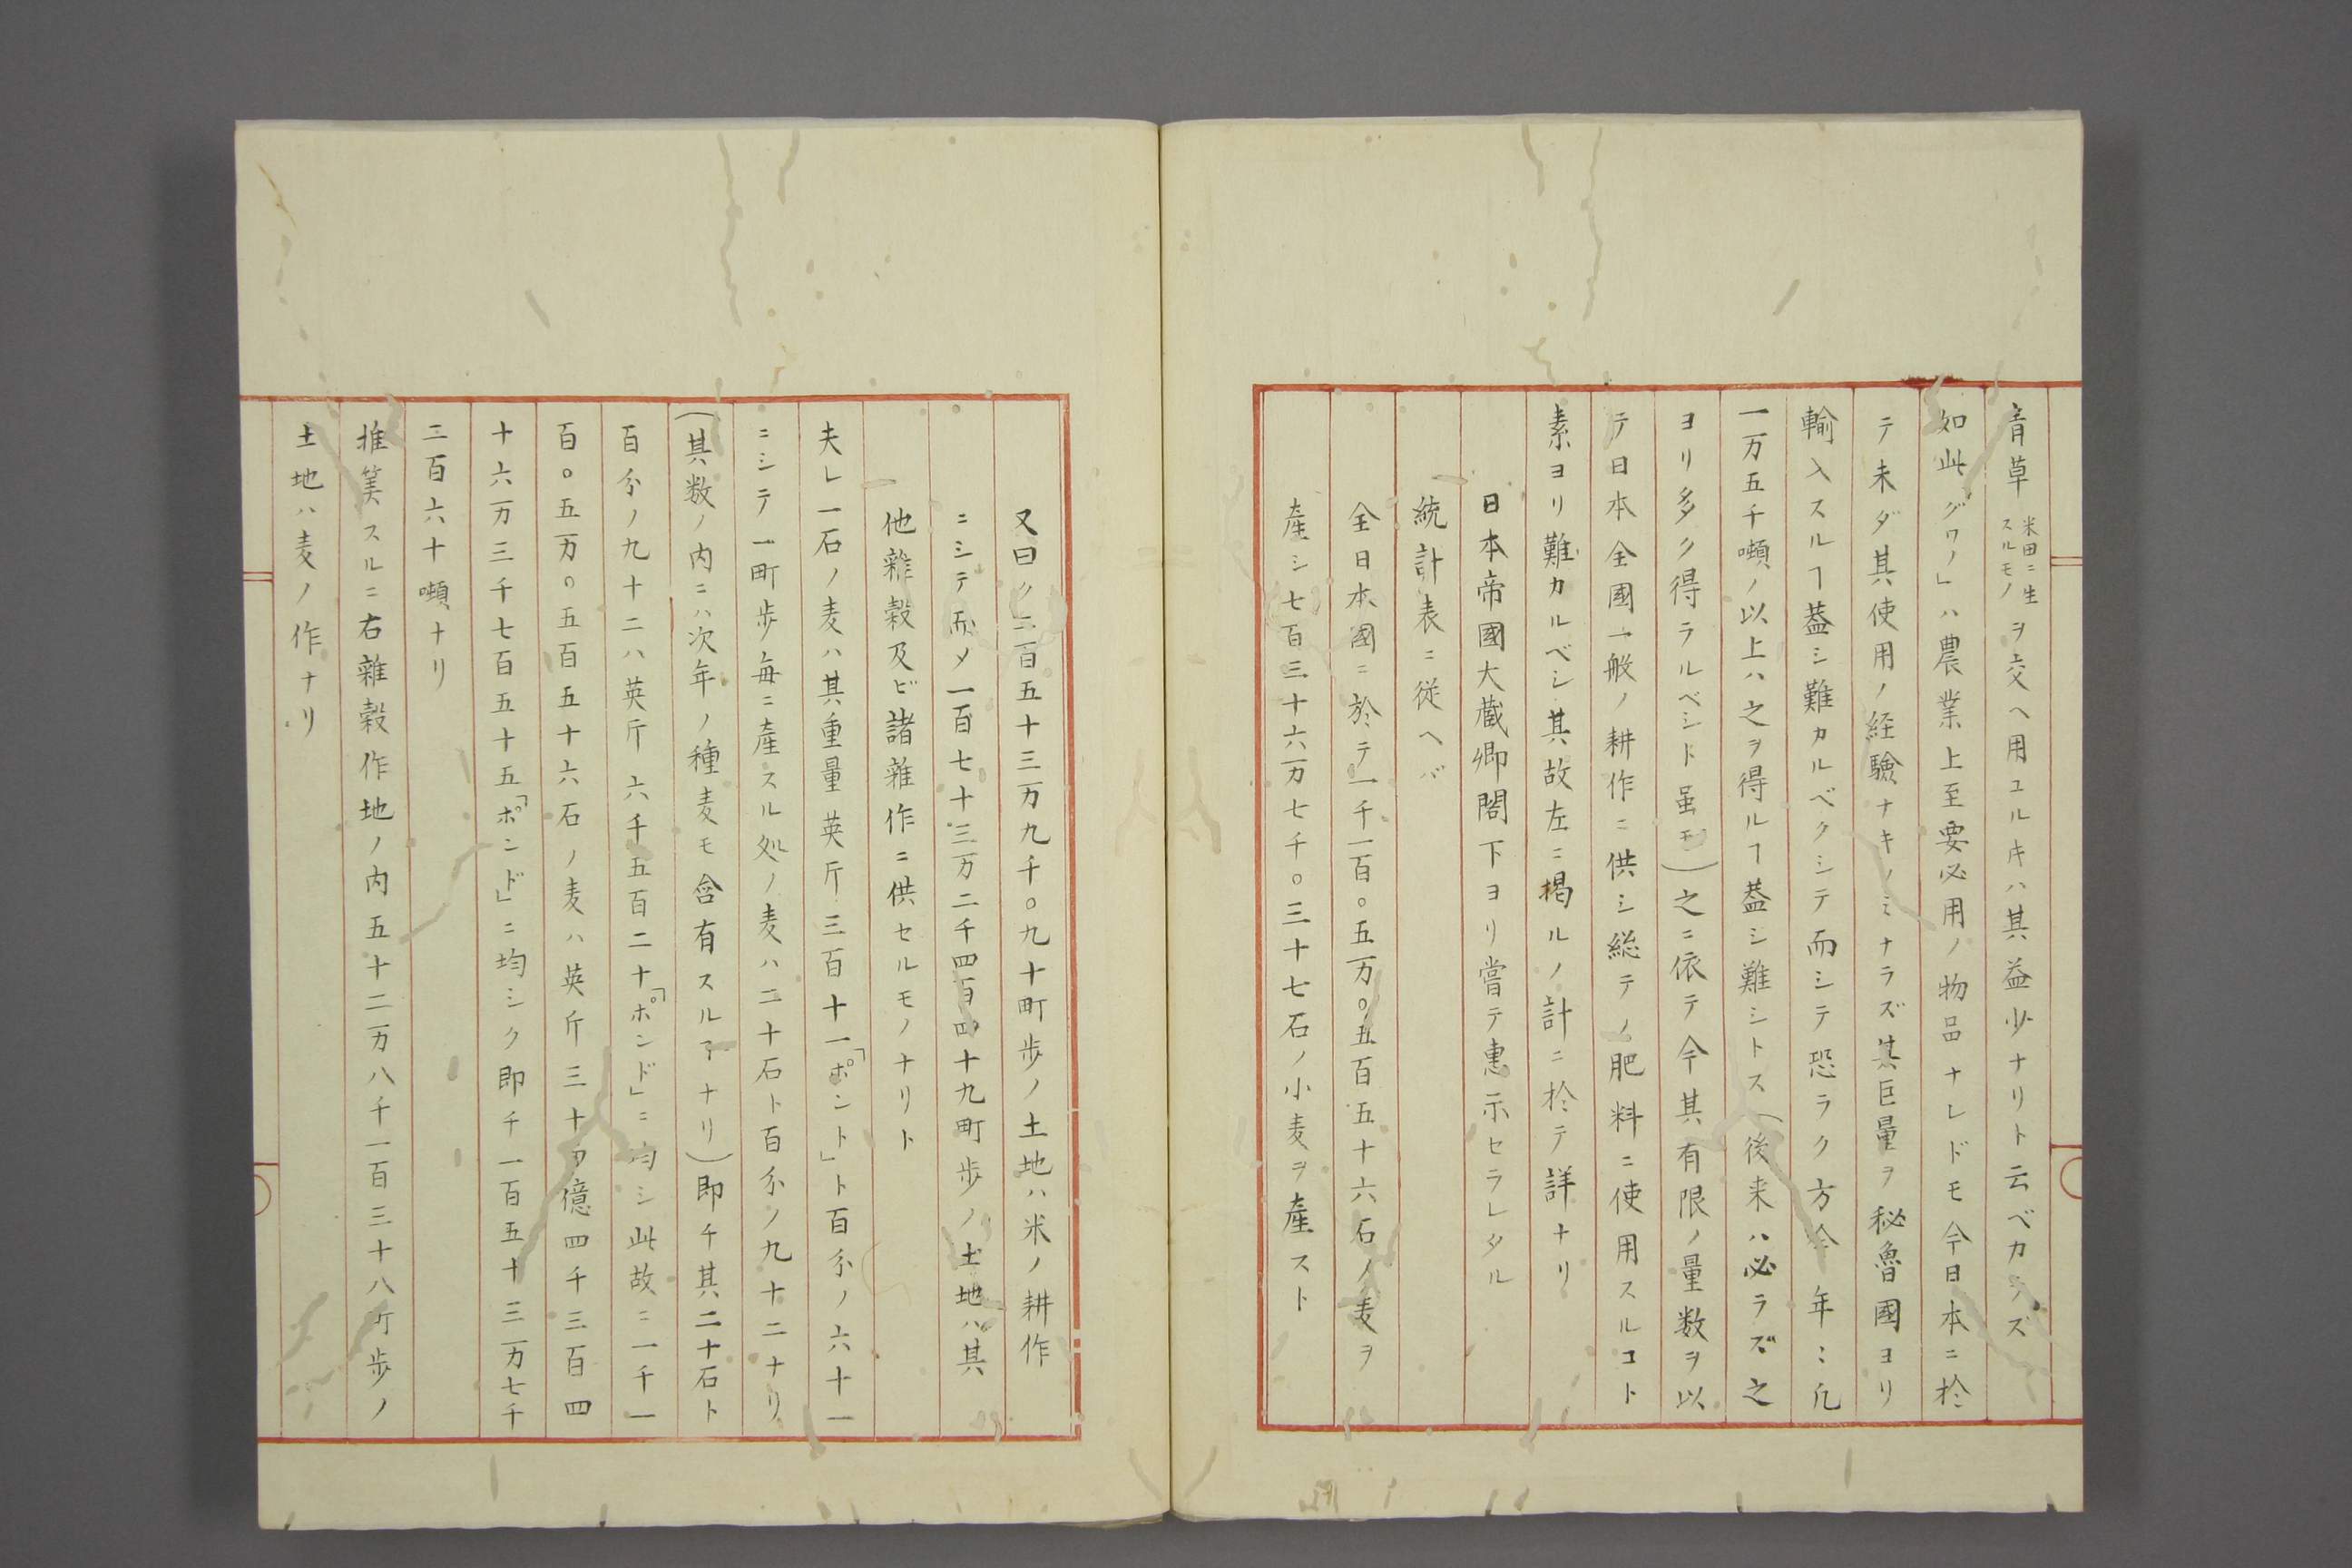 青草米田ニ生スルモノヲ交ヘ用ユルキハ其益少ナリト云ベカラズ
如此グワノ」ハ農業上至要必用ノ物品ナレドモ今日本ニ於
テ未ダ其使用ノ経驗ナキノミナラズ其巨量ヲ秘魯國ヨリ
輸入スルヿ葢シ難カルベクシテ而シテ恐ラク方今年〻凡
一万五千噸ノ以上ハ之ヲ得ルヿ葢シ難シトス(後来ハ必ラズ之
ヨリ多ク得ラルベシト虽モ)之ニ依テ今其有限ノ量数ヲ以
テ日本全國一般ノ耕作ニ供シ総テノ肥料ニ使用スルコト
素ヨリ難カルベシ其故左ニ掲ルノ計ニ於テ詳ナリ
日本帝國大蔵卿閤下ヨリ嘗テ恵示セラレタル
統計表ニ従ヘバ
全日本國ニ於テ一千一百〇五万〇五百五十六石ノ麦ヲ
産シ七百三十六万七千〇三十七石ノ小麦ヲ産スト
又曰ク二百五十三万九千〇九十町歩ノ土地ハ米ノ耕作
ニシテ而メ一百七十三万二千四百四十九町歩ノ土地ハ其
他雜穀及ビ諸雜作ニ供セルモノナリト
夫レ一石ノ麦ハ其重量英斤三百十一「ポント」ト百分ノ六十一
ニシテ一町歩毎ニ産スル処ノ麦ハ二十石ト百分ノ九十二ナリ
(其数ノ内ニハ次年ノ種麦モ含有スルヿナリ)即チ其二十石ト
百分ノ九十二ハ英斤六千五百二十「ポンド」ニ均シ此故ニ一千一
百〇五万〇五百五十六石ノ麦ハ英斤三十四億四千三百四
十六万三千七百五十五「ポンド」ニ均シク即チ一百五十三万七千
二百六十噸ナリ
推筭スルニ右雜穀作地ノ内五十二万八千一百三十八町歩ノ
土地ハ麦ノ作ナリ